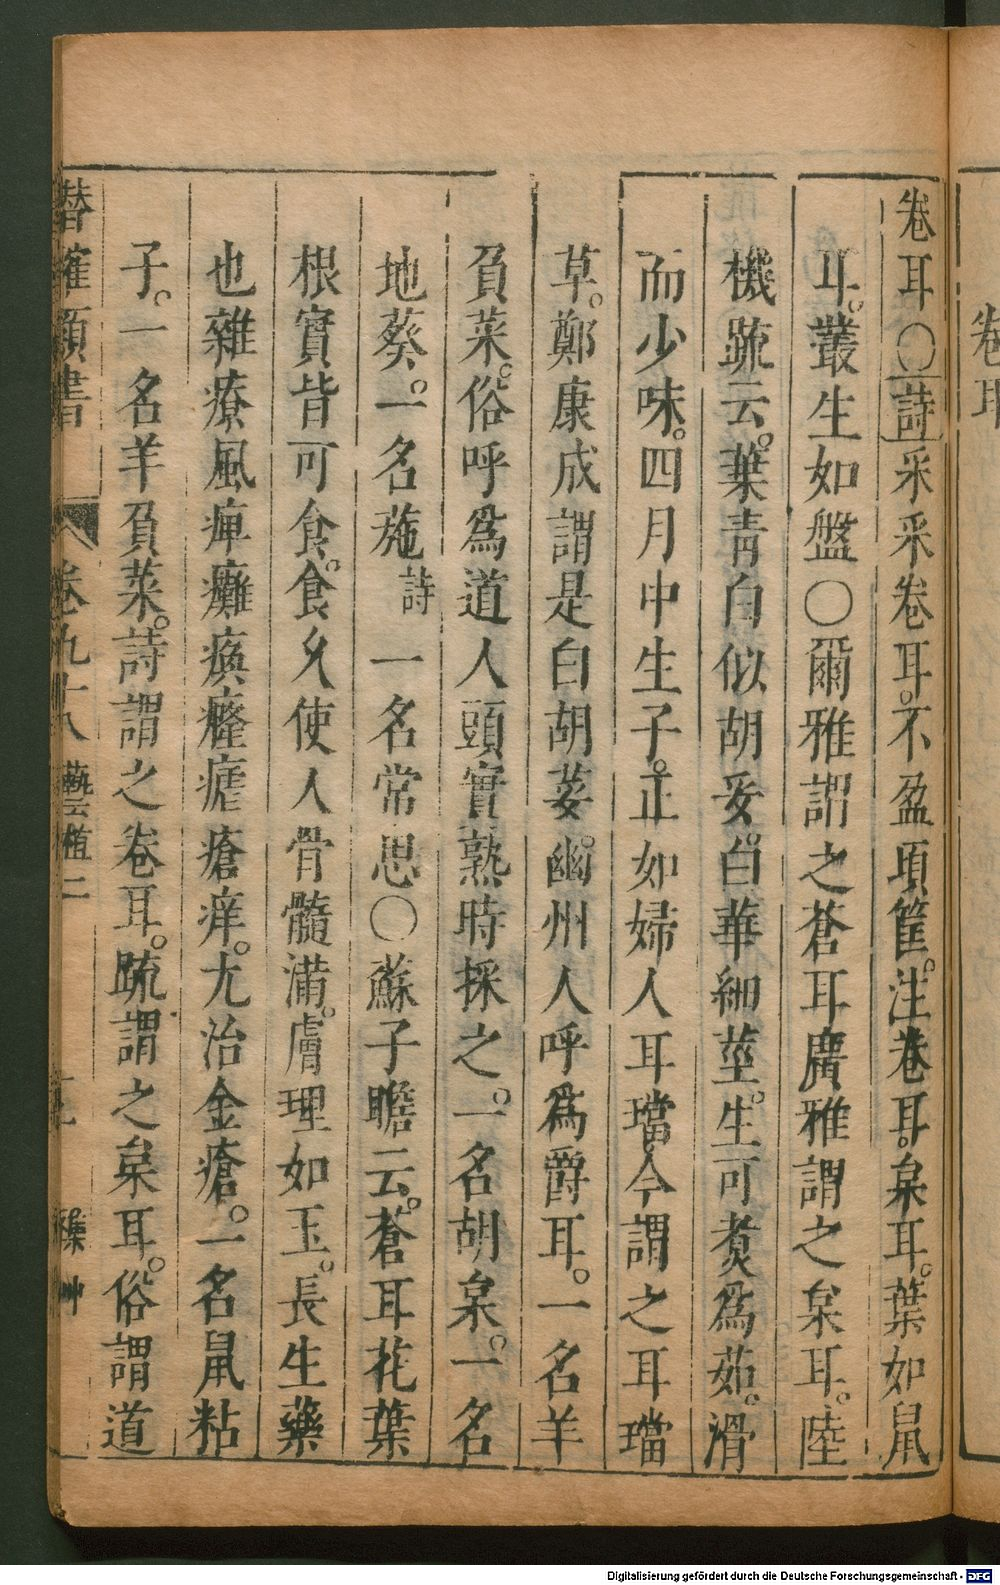 卷耳○詩采采卷耳。不盈頃筐。注卷耳。枲耳。葉如鼠
耳。叢生如盤○爾雅謂之蒼耳廣雅謂之枲耳。陸
機䟽云。葉青白似胡荽。白華細莖。生可煑爲茹。滑
而少味。四月中生子。正如婦人耳璫。今謂之耳璫
草。鄭康成謂是白胡荽。幽州人呼爲爵耳。一名羊
負菜。俗呼爲道人頭實熟時採之。一名胡枲。一名
地葵。一名葹詩一名常思○蘇子瞻云。蒼耳花葉
根實皆可食。食久使人骨髓滿。膚理如玉。長生藥
也雜療風痺癱瘓癃瘧瘡痒。尤治金瘡。一名鼠粘
子。一名羊負菜。詩謂之卷耳。䟽謂之枲耳。俗謂道
卷九十八 藝植二
卷耳
Digitalisierung gefördert durch die Deutsche Forschungsgemeinschaft - DFG